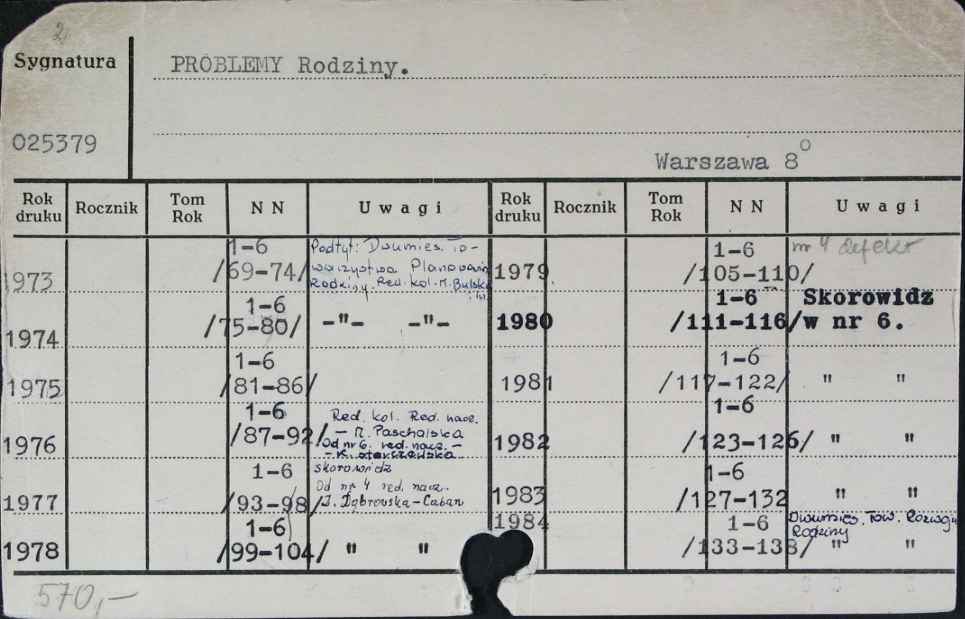 2
Sygnatura
PROBLEMY Rodziny.
025379
Warszawa 8°
Rok druku Rocznik Tom Rok N N Uwagi Rok druku Rocznik Tom Rok N N Uwagi
1973 1-6 /69-74/
Podtyt: Dwumies. To-
warzystwa Planowania
Rodziny. Red. kol. M. Bulska
i in.
1974 1-6 /75-80/ -"- -"-
1975 1-6 /81-86/
1976 1-6 /87-92/
Red. kol. Red. nacz.
- M. Paschalska
Od nr 6. red. nacz. -
- K.
1977 1-6 /93-98/
skorowidz
Od nr 4 red. nacz.
J. Dąbrowska-Caban
1978 1-6 /99-104/ " "
1979 1-6 /105-110/ nr 4 defekt
1980 1-6 /111-116/ Skorowidz
w nr 6.
1981 1-6 /117-122/ " "
1982 1-6 /123-126/ " "
1983 1-6 /127-132 " "
1984 1-6 /133-138/ " "
Dwumies. Tow. Rozwoju
Rodziny
570,-